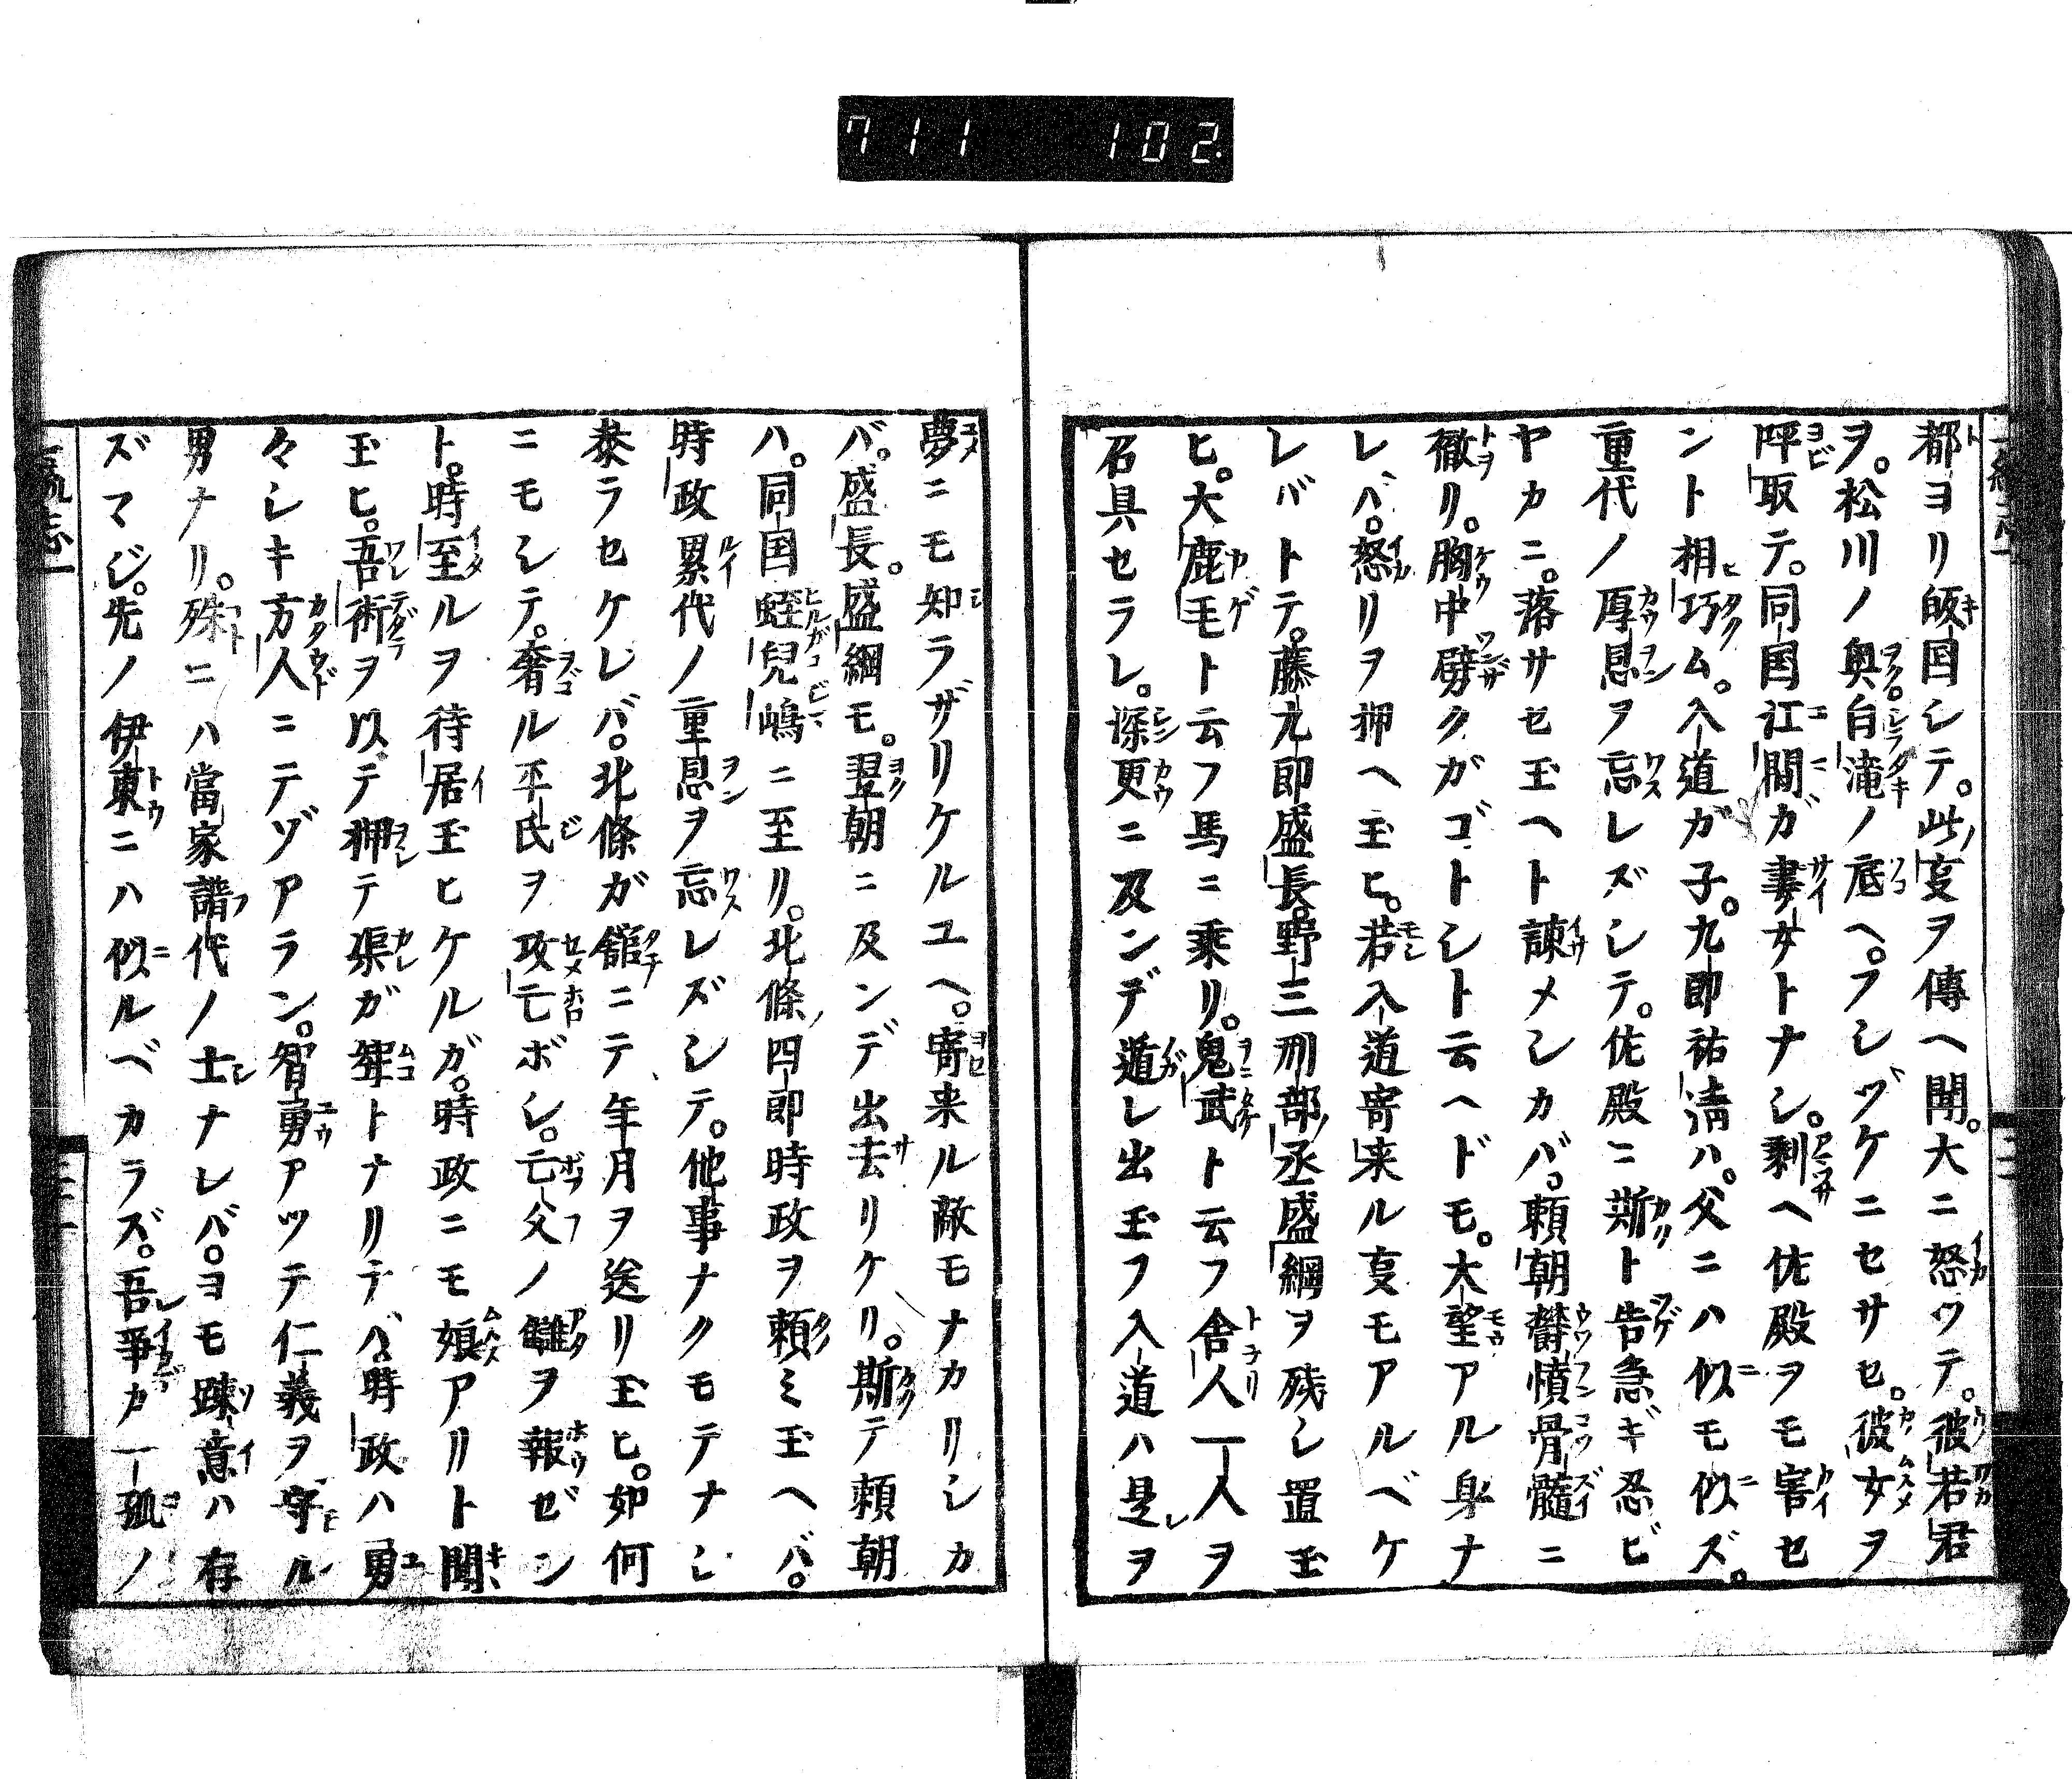 711 102.
都ヨリ皈国シテ。此ノ亥ヲ傳ヘ聞。大ニ怒ツテ。彼若君
ヲ。松川ノ奥白滝ノ底ヘ。フシヅケニセサセ。彼女ヲ
呼取テ。同国江間ガ妻女トナシ。剰ヘ佐殿ヲモ害セ
ント相巧ム。入道ガ子。九郎祐清ハ。父ニハ似モ似ズ。
重代ノ厚恩ヲ忘レズシテ。佐殿ニ斯ト告急ギ忍ビ
ヤカニ。落サセ玉ヘト諫メシカバ。頼朝欝憤骨髓ニ
徹リ。胸中劈クガゴトシト云ヘドモ。大望アル身ナ
レバ。怒リヲ押ヘ玉ヒ。若入道寄来ル亥モアルベケ
レバトテ。藤九郎盛長。野三刑部丞盛綱ヲ残シ置玉
ヒ。大鹿毛ト云フ馬ニ乗リ。鬼武ト云フ舎人一人ヲ
召具セラレ。深更ニ及ンデ遁レ出玉フ入道ハ是ヲ
夢ニモ知ラザリケルユヘ。寄来ル敵モナカリシカ
バ。盛長。盛綱モ。翌朝ニ及ンデ出去リケリ。斯テ頼朝
ハ。同国蛭兒嶋ニ至リ。北條四郎時政ヲ頼ミ玉ヘバ。
時政累代ノ重恩ヲ忘レズシテ。他事ナクモテナシ
泰ラセケレバ。北條ガ舘ニテ年月ヲ送リ玉ヒ。如何
ニモシテ。奢ル平氏ヲ攻亡ボシ。亡父ノ讎ヲ報ゼン
ト。時至ルヲ待居玉ヒケルガ。時政ニモ娘アリト聞
玉ヒ。吾術ヲ以テ押テ渠ガ聟トナリテバ。時政ハ勇
々シキ方人ニテゾアラン。智勇アツテ仁義ヲ守ル
男ナリ。殊ニハ當家譜代ノ士ナレバ。ヨモ踈意ハ存
ズマジ。先ノ伊東ニハ似ルベカラズ。吾爭カ一孤ノ